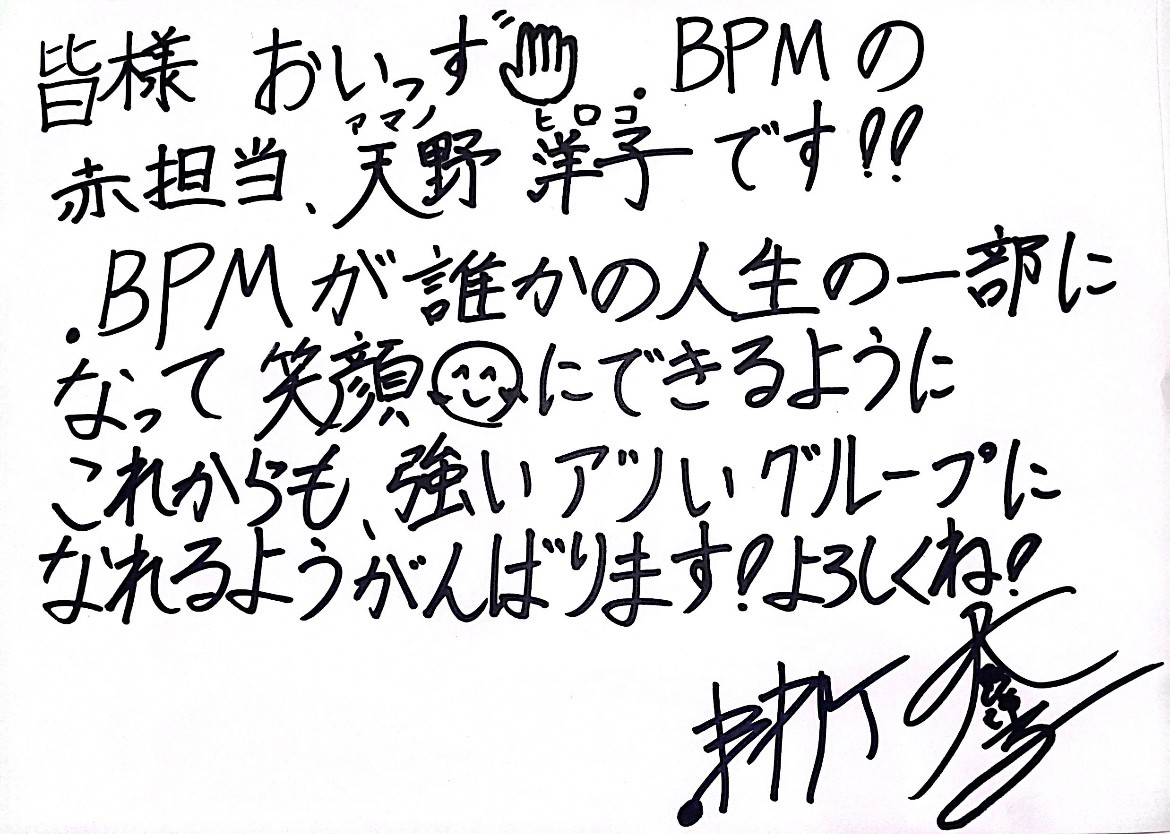 皆様 おいっす゛ .BPMの
赤担当、天野(アマノ) 洋子(ヒロコ)です!!
.BPMが誰かの人生の一部に
なって笑顔にできるように
これからも、強いアツいグループに
なれるようがんばります!よろしくね!